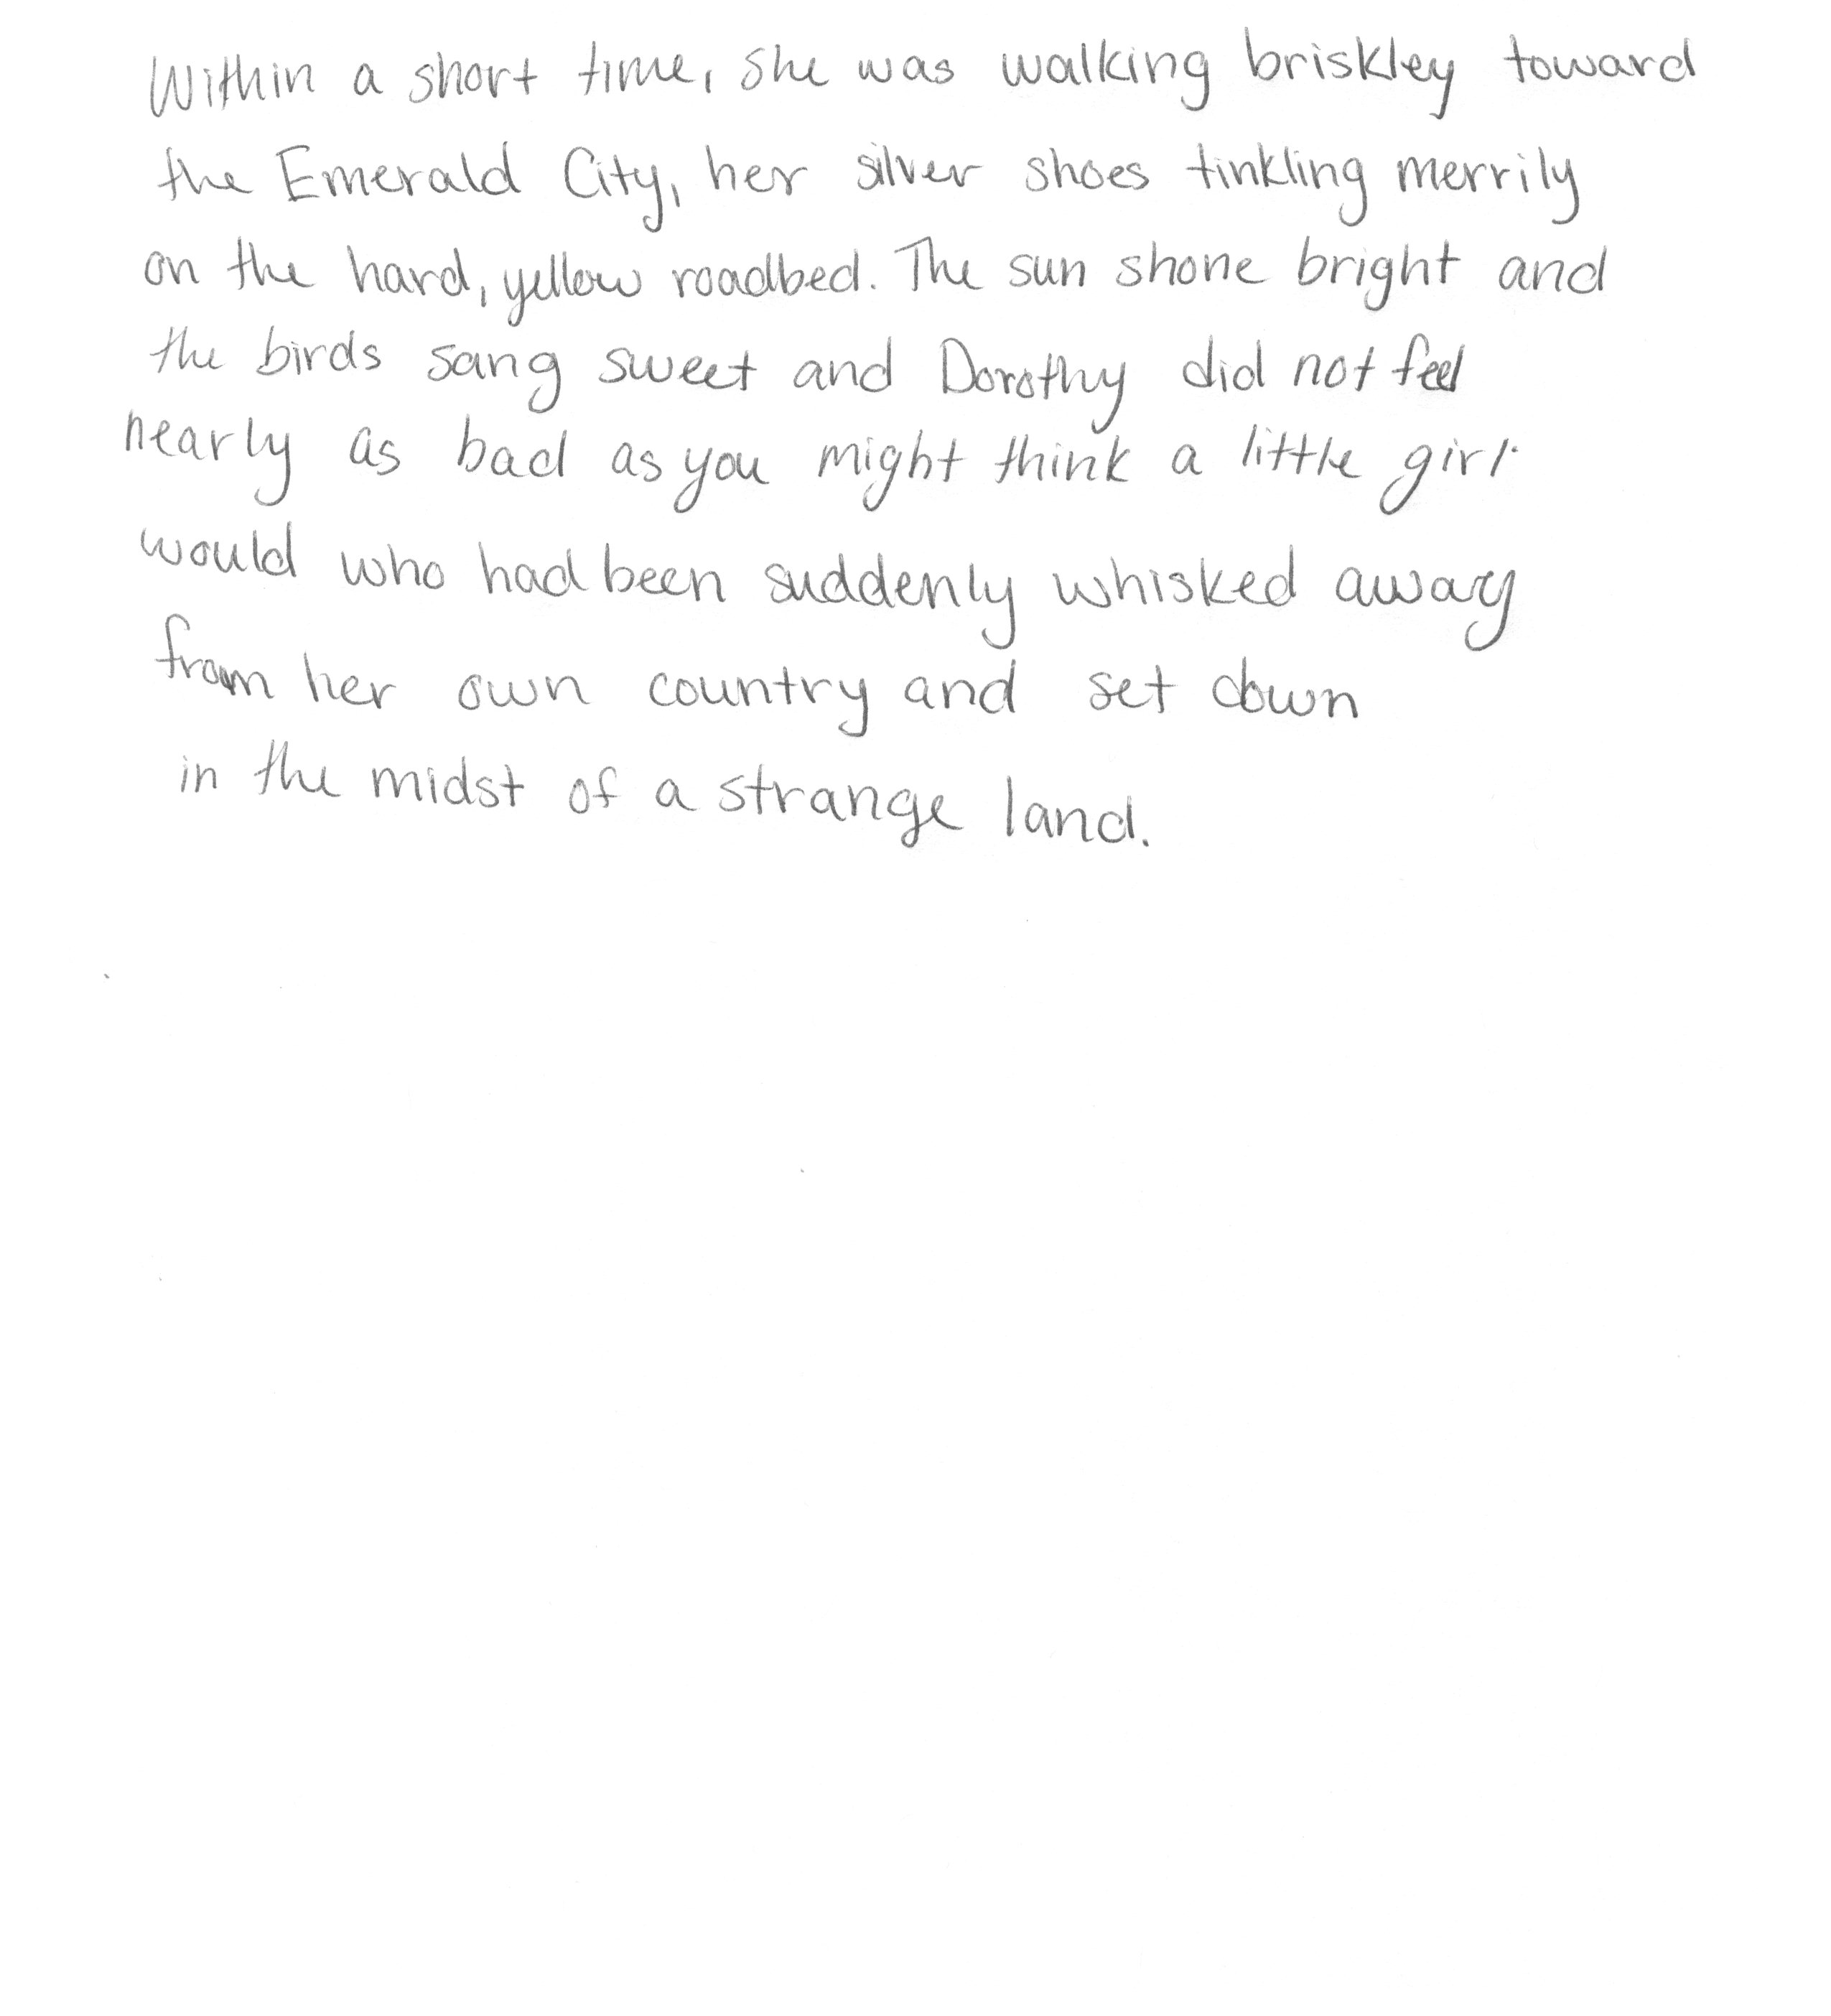 Within a short time, she was walking briskley toward
the Emerald City, her silver shoes tinkling merrily
on the hard, yellow roadbed. The sun shone bright and
the birds sang sweet and Dorothy did not feel
nearly as bad as you might think a little girl
would who had been suddenly whisked away
from her own country and set down
in the midst of a strange land.